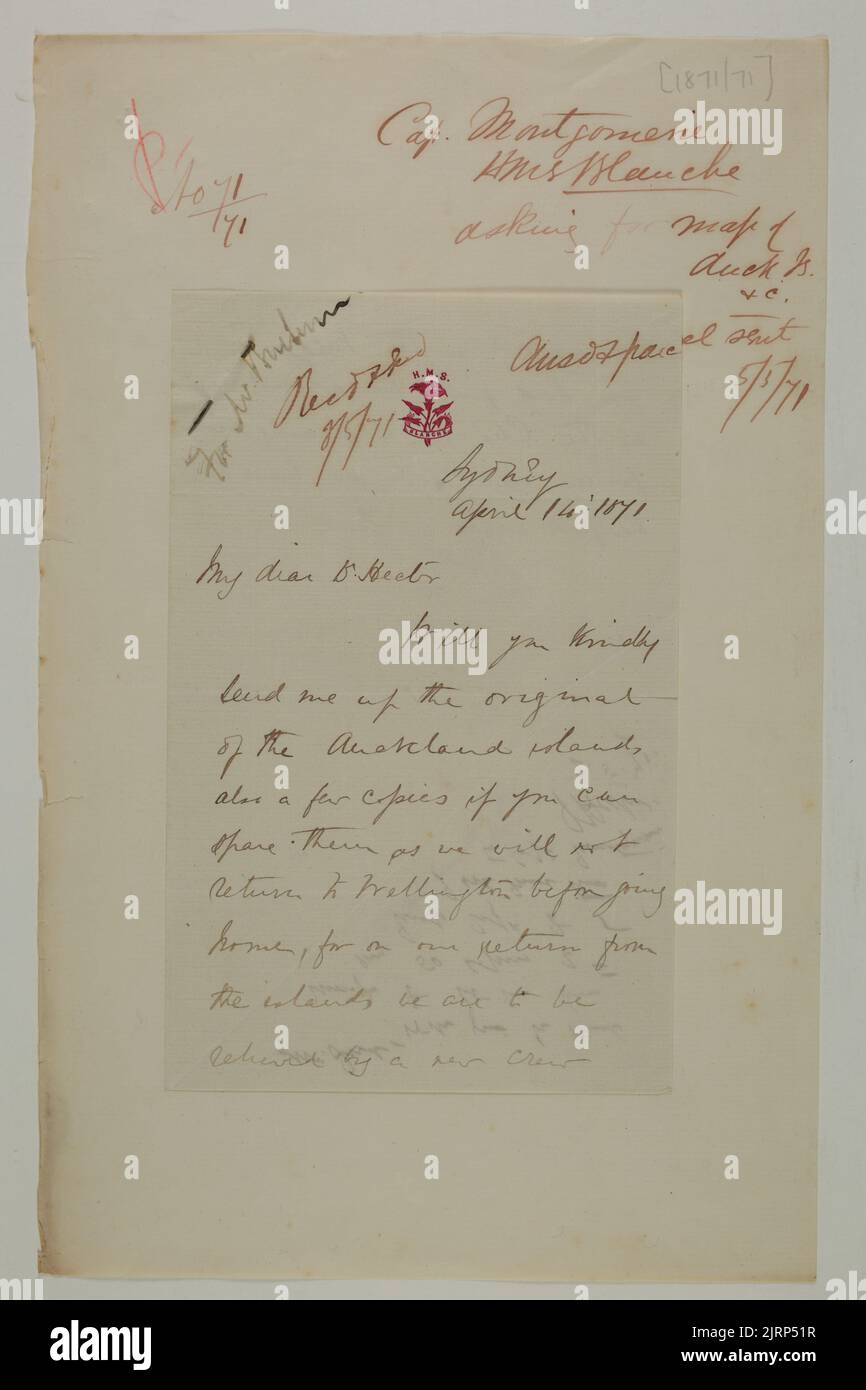 [1871/71]
Cap. Montgomerie
HMS Blanche
71/71
asking for map of
Auck Is.
&c.
Ansd & parcel sent
5/5/71
For Mr.
Recd
3/5/71
H.M.S.
BLANCHE
Sydney
April 1871
My dear Dr. Hector
Will you kindly
send me up the original
of the Auckland islands
also a few copies if you can
spare them as we will not
return to Wellington before going
home, for on our return from
the islands we are to be
relieved by a new crew
alamy
Image ID: 2JRP51R
www.alamy.com